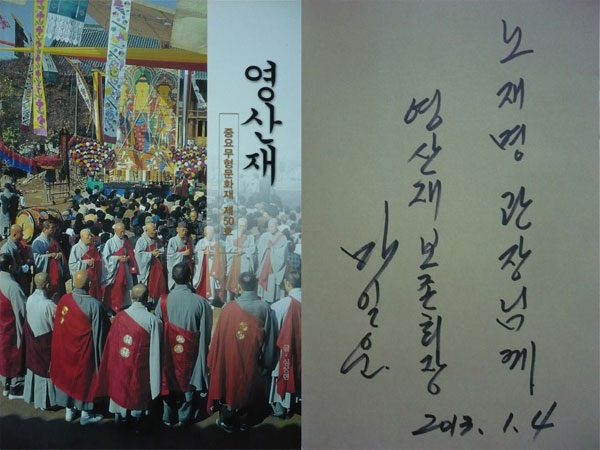 영산재
중요무형문화재 제50호
글·심상현
노재명 관장님께
영산재 보존회장
마일운
2013. 1. 4